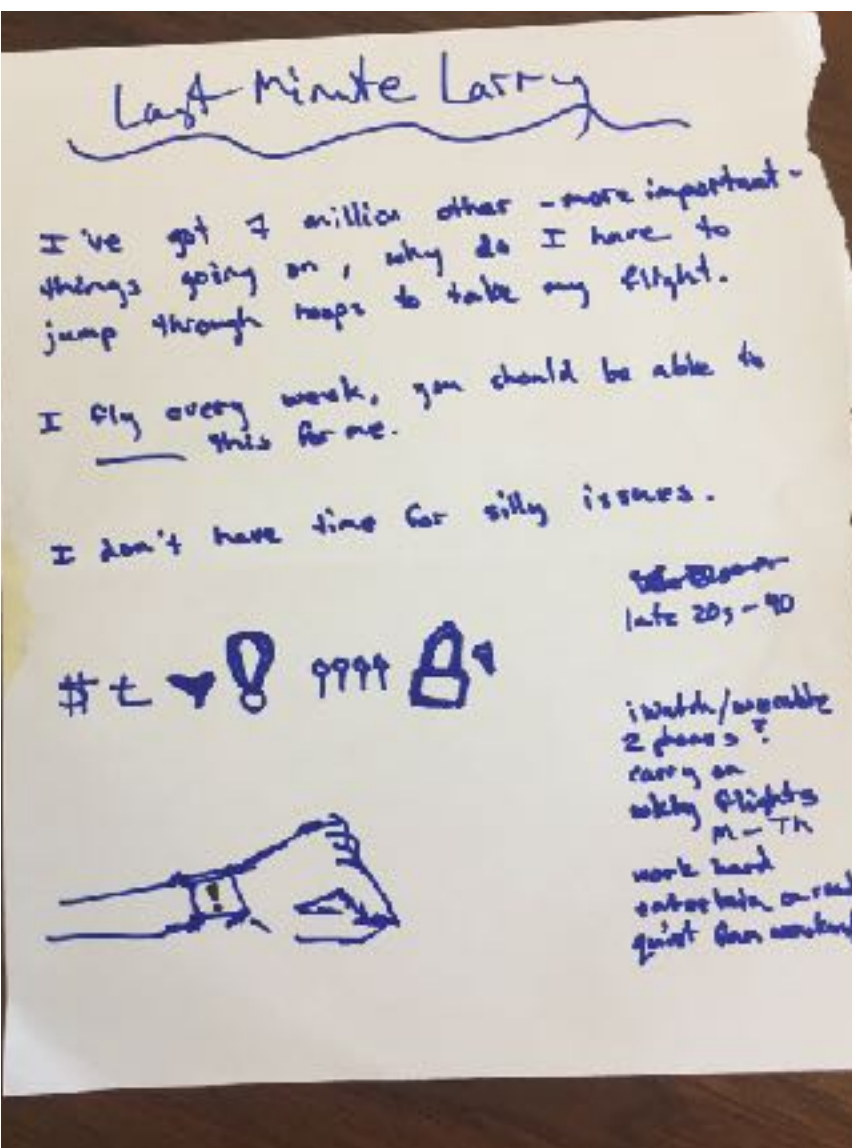 Last Minute Larry
I've got 7 million other - more important -
things going on, why do I have to
jump through hoops to take my flight.
I fly every week, you should be able to
____ this for me.
I don't have time for silly issues.
late 20s - 40
iwatch/wearable
2 phones?
carry on
wkly flights
M - Th
work hard
entertain on road
quiet fam weekend
# t ! ????
!